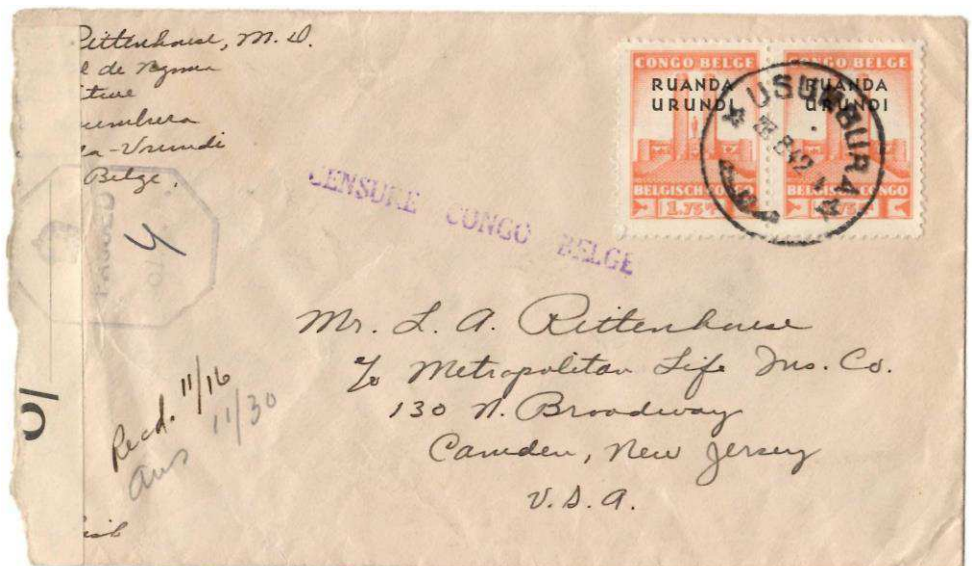 Rittenhouse, M.D.
de
Belge.
CENSURE CONGO BELGE
CONGO BELGE
RUANDA
URUNDI
BELGISCH CONGO
1.75
CONGO BELGE
RUANDA
URUNDI
BELGISCH CONGO
USUMBURA
PASSED
4
Mr. L. A. Rittenhouse
c/o Metropolitan Life Ins. Co.
130 N. Broadway
Camden, New Jersey
U.S.A.
Recd. 11/16
Ans 11/30